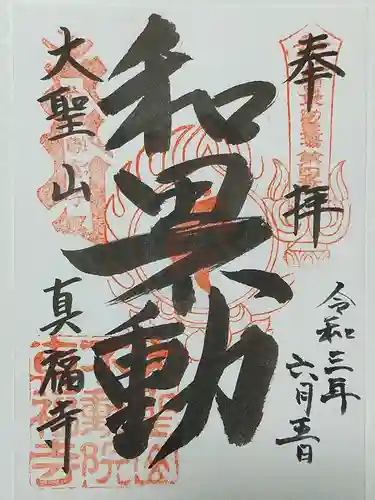 奉拝
令和三年
六月五日
和田不動
大聖山
真福寺